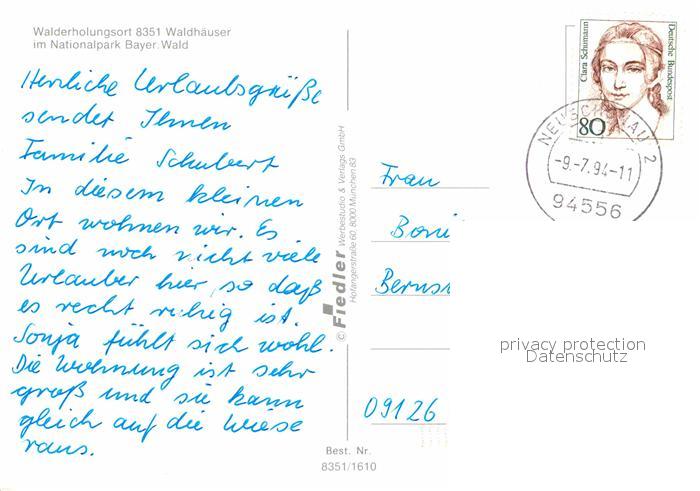 Walderholungsort 8351 Waldhäuser
im Nationalpark Bayer. Wald
Herzliche Urlaubsgrüße
sendet Ihnen
Familie Schubert
In diesem kleinen
Ort wohnen wir. Es
sind noch nicht viele
Urlauber hier, so daß
es recht ruhig ist.
Sonja fühlt sich wohl.
Die Wohnung ist sehr
groß und sie kann
gleich auf die Wiese
raus.
© Fiedler Werbestudio & Verlags GmbH
Hofangerstraße 60, 8000 München 83
Best. Nr.
8351/1610
Clara Schumann
Deutsche Bundespost
80
2
-9.-7.94-11
94556
Frau
Boni
09126
privacy protection
Datenschutz